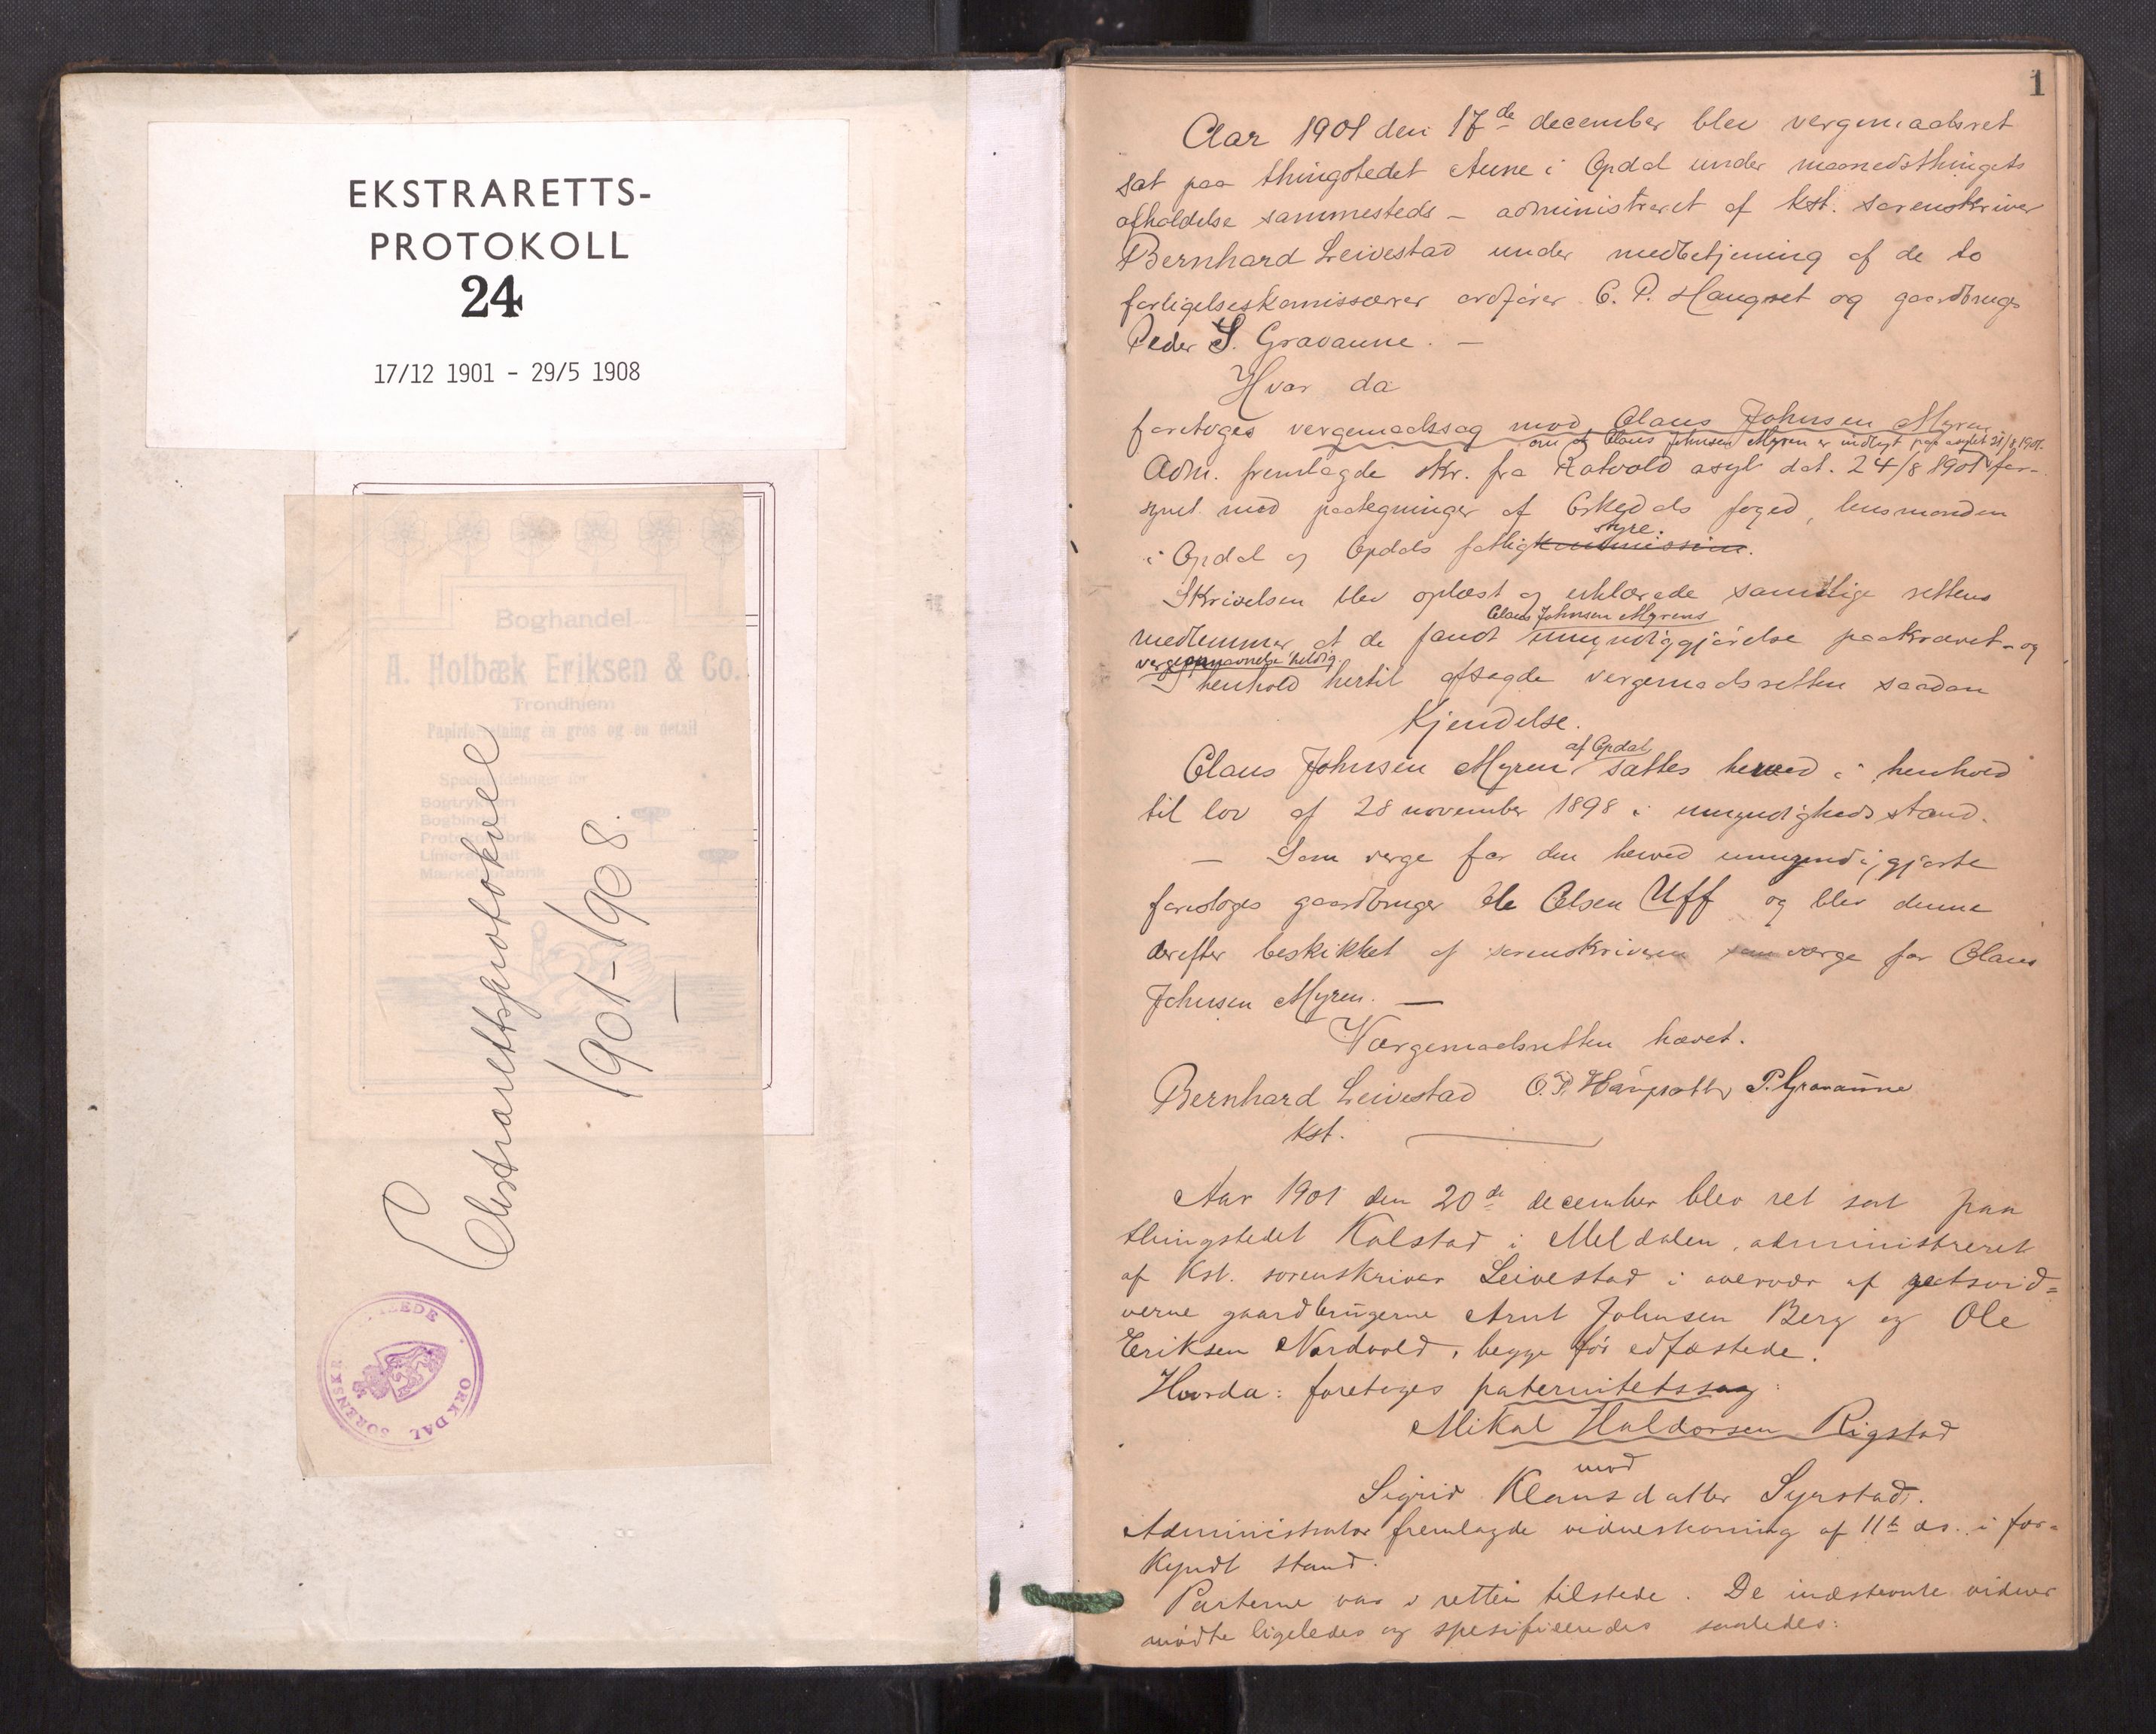 EKSTRARETTS-
PROTOKOLL
24
17/12 1901 - 29/5 1908
Boghandel
A. Holbæk Eriksen & Co.
Trondhjem
Papirforretning en gros og en detail
Specialafdelinger for
Bogtrykkeri
Bogbinderi
Protokolfabrik
Liniéranstalt
Mærkelapfabrik
Ekstrarettsprotokoll
1901-1908.
ORKDAL SORENSKR
1
Aar 1901 den 17de december blev vergemaalsret
sat paa thingstedet Aune i Opdal under maanedsthingets
afholdelse sammesteds – administreret af kst. sorenskriver
Bernhard Leivestad under medbetjening af de to
forligelseskomissærer ordfører O. P. Haugset og gaardbruger
Peder S. Gravaune. –
Hvor da
foretoges vergemaalssag mod Claus Johnsen Myren
om at Claus Johnsen Myren er indlagt paa asylet 21/8 1901.
Adm. fremlagde skr. fra Rotvold asyl dat. 24/8 1901 for-
synet med paategninger af Orkedals foged, lensmanden
styre.
i Opdal og Opdals fattigkommission.
Skrivelsen blev oplæst og erklærede samtlige rettens
Claus Johnsen Myrens
medlemmer at de fandt umyndiggjørelse paakrævet – og
vergeopnævnelse heldig.
I henhold hertil afsagde vergemaalsretten saadan
Kjendelse.
af Opdal
Claus Johnsen Myren sættes herved i henhold
til lov af 28 november 1898 i umyndigheds stand.
– Som verge for den herved umyndiggjorte
foresloges gaardbruger Ole Olsen Uff og blev denne
derefter beskikket af sorenskriveren som værge for Claus
Johnsen Myren. —
Værgemaalsretten hævet.
Bernhard Leivestad O. P. Haugsett P. Gravaune
kst.
Aar 1901 den 20de december blev ret sat paa
thingstedet Kalstad i Meldalen, administreret
af kst. sorenskriver Leivestad i overvær af retsvid=
nerne gaardbrugerne Arnt Johnsen Berg og Ole
Eriksen Nordvold, begge før edfæstede.
Hvorda: foretoges paternitetssag:
Mikal Haldorsen Rigstad
mod
Sigrid Klausdatter Syrstad.
Administrator fremlagde vidnestevning af 11te ds. i for-
kyndt stand.
Parterne var i retten tilstede. De indstevnte vidner
mødte ligeledes og spesificeredes saaledes: